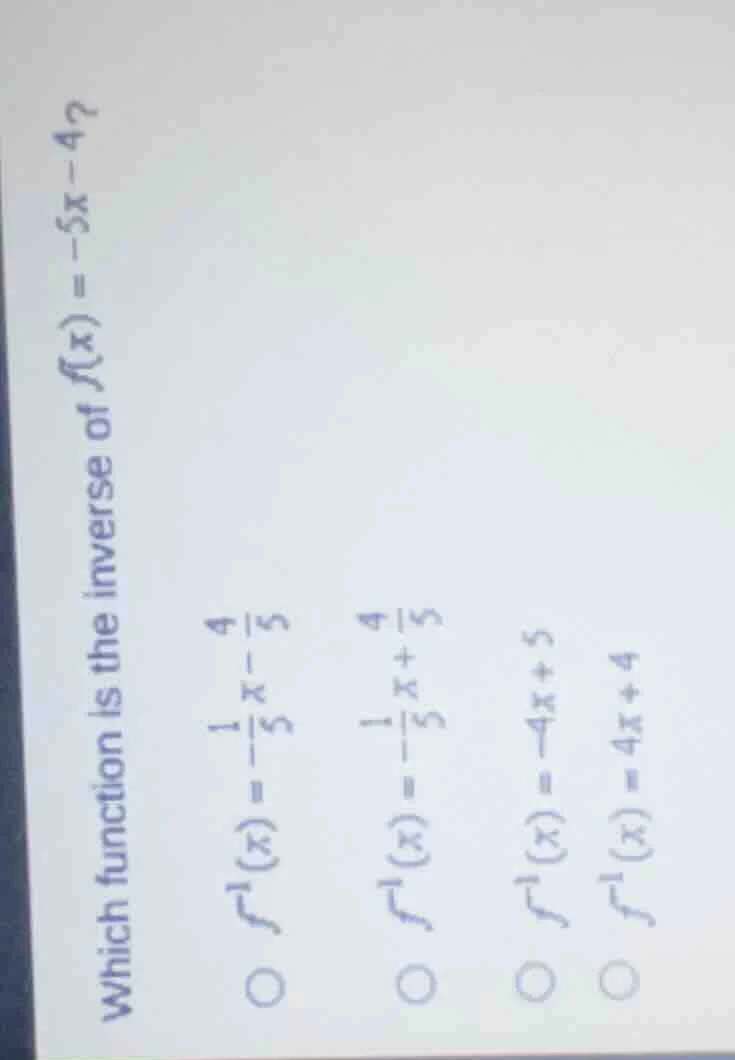 Which function is the inverse of f(x) = -5x - 4?
f⁻¹(x) = -\frac{1}{5}x - \frac{4}{5}
f⁻¹(x) = -\frac{1}{5}x + \frac{4}{5}
f⁻¹(x) = -4x + 5
f⁻¹(x) = 4x + 4